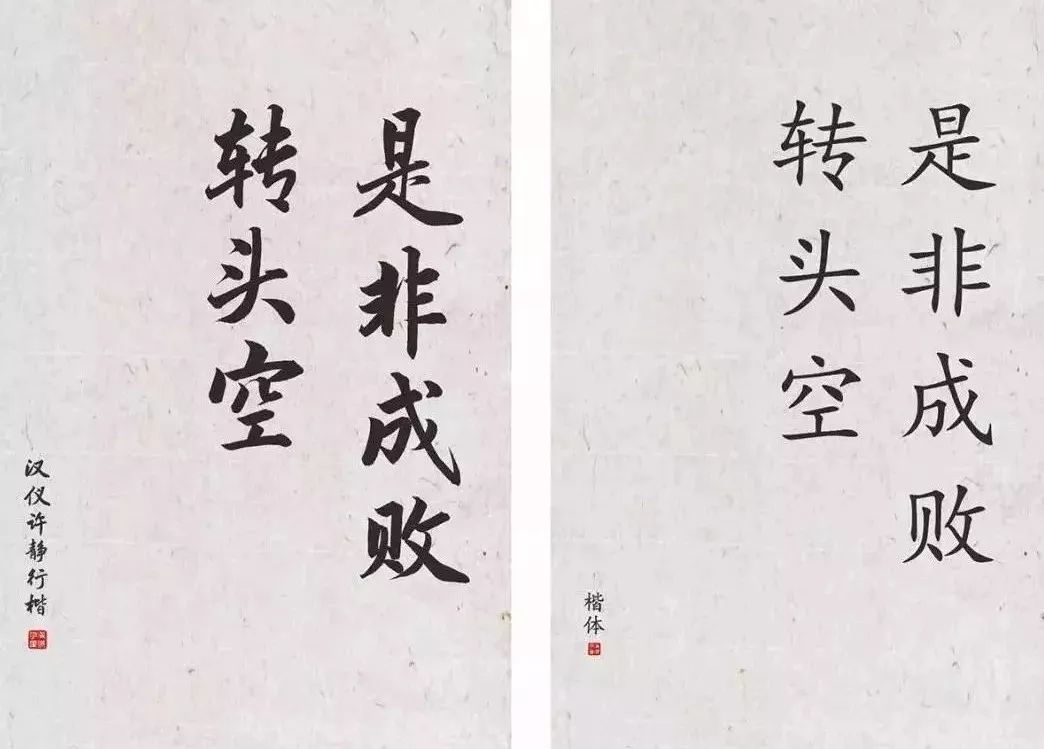 是非成败
转头空
汉仪许静行楷
是非成败
转头空
楷体